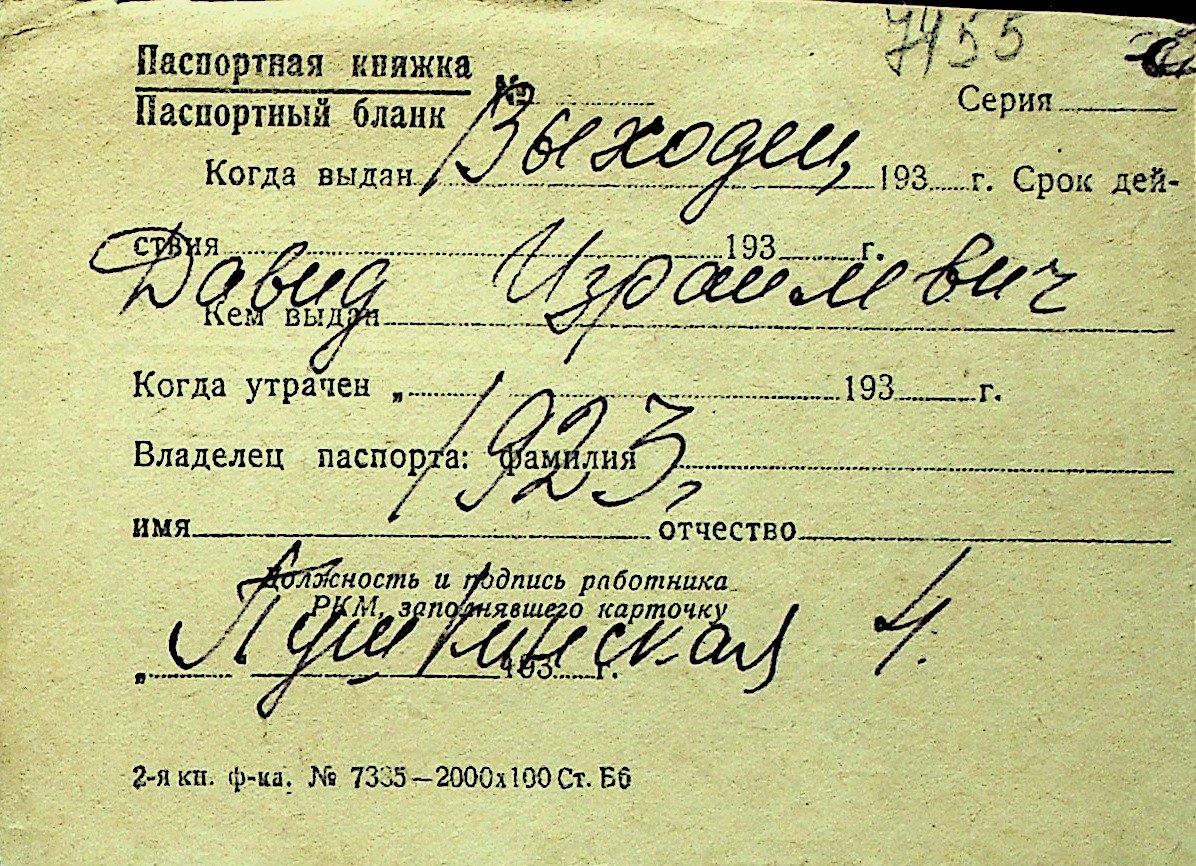 7455
Паспортная книжка
Паспортный бланк № Серия
Выходец,
Когда выдан 193 г. Срок дей-
ствия 193 г.
Давид Израилевич
Кем выдан
Когда утрачен „ 193 г.
1923,
Владелец паспорта: фамилия
имя отчество
Должность и подпись работника
РКМ, заполнявшего карточку
Пушкинская 4.
„ 193 г.
2-я кн. ф-ка. № 7335—2000х100 Ст. Бб